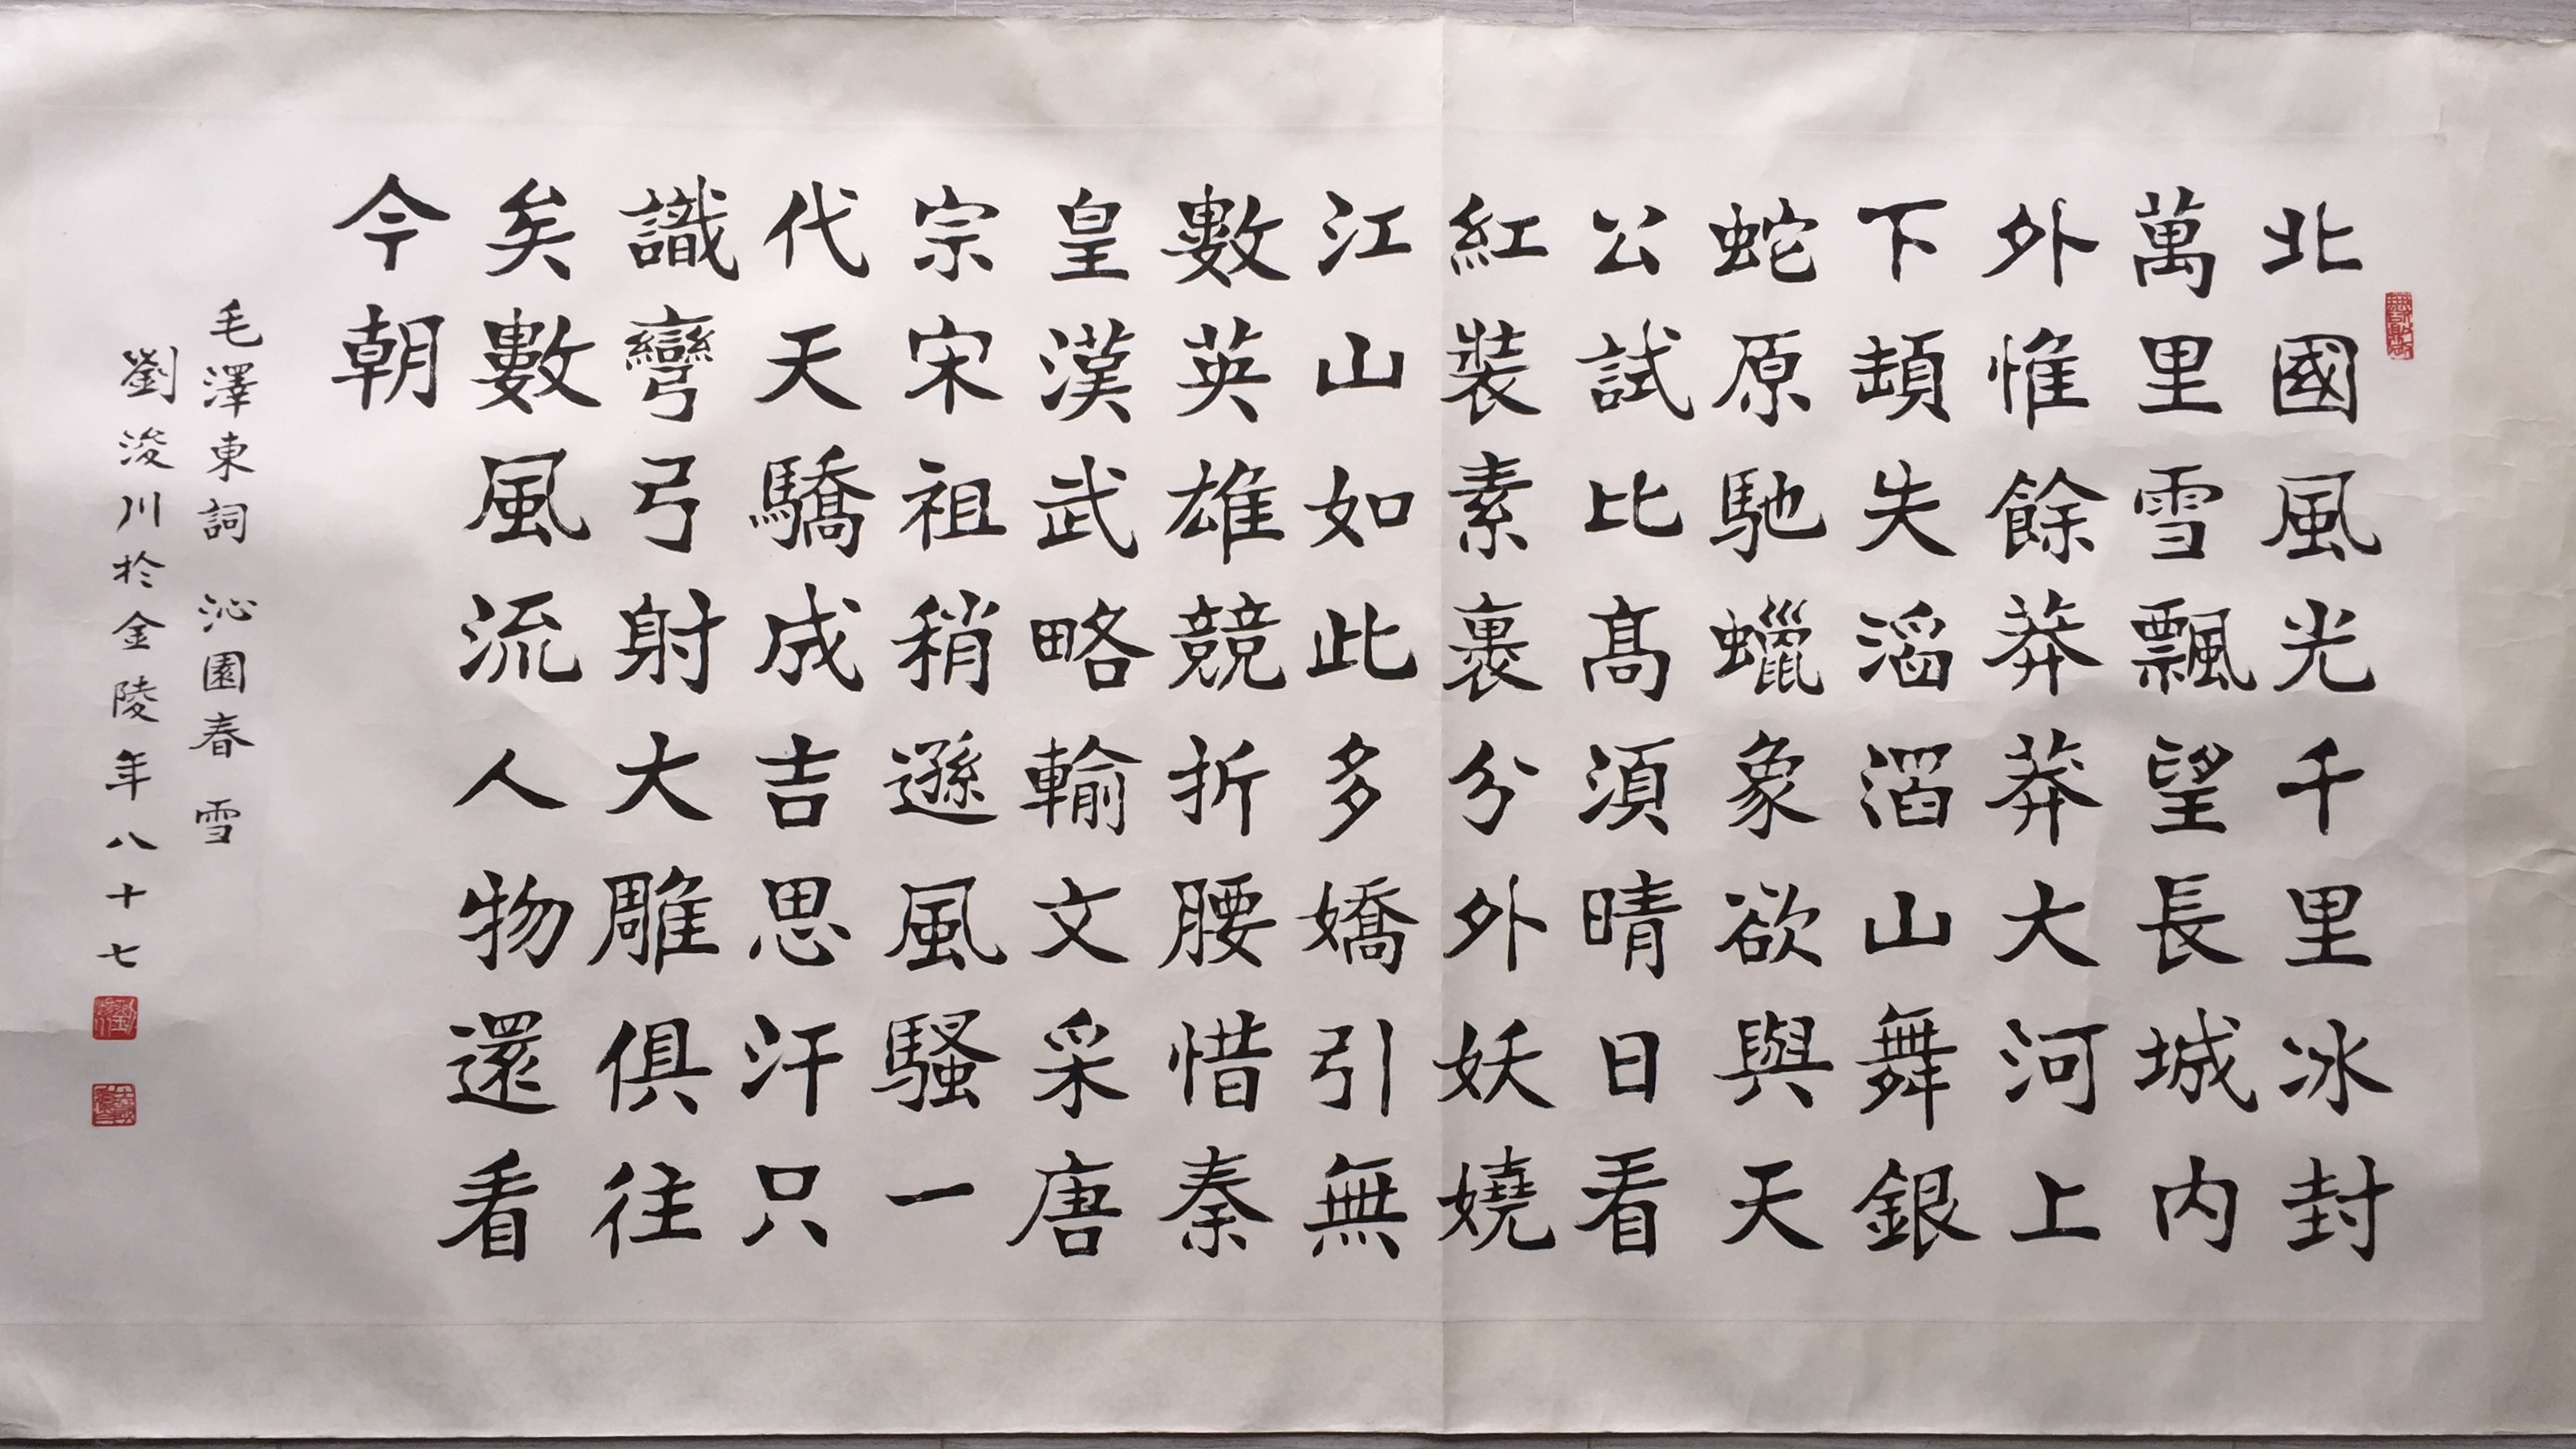 北國風光千里冰封
萬里雪飄望長城内
外惟餘莽莽大河上
下頓失滔滔山舞銀
蛇原馳蠟象欲與天
公試比髙湏晴日看
紅裝素裹分外妖嬈
江山如此多嬌引無
數英雄競折腰惜秦
皇漢武略輸文采唐
宗宋祖稍遜風騷一
代天驕成吉思汗只
識彎弓射大雕俱往
矣數風流人物還看
今朝
毛澤東詞 沁園春 雪
劉浚川於金陵年八十七